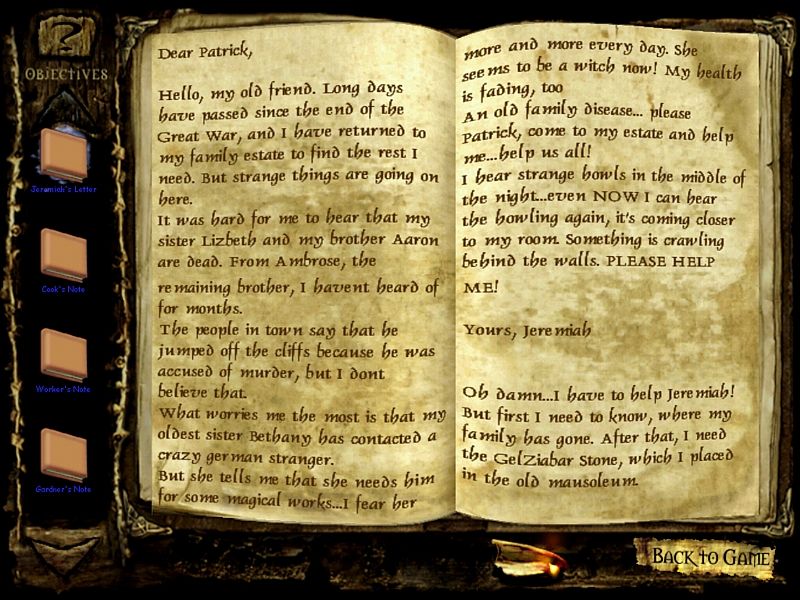 OBJECTIVES
Jeramiah's Letter
Cook's Note
Worker's Note
Gardner's Note
Dear Patrick,
Hello, my old friend. Long days
have passed since the end of the
Great War, and I have returned to
my family estate to find the rest I
need. But strange things are going on
here.
It was hard for me to hear that my
sister Lizbeth and my brother Aaron
are dead. From Ambrose, the
remaining brother, I havent heard of
for months.
The people in town say that he
jumped off the cliffs because he was
accused of murder, but I dont
believe that.
What worries me the most is that my
oldest sister Bethany has contacted a
crazy german stranger.
But she tells me that she needs him
for some magical works...I fear her
more and more every day. She
seems to be a witch now! My health
is fading, too
An old family disease... please
Patrick, come to my estate and help
me...help us all!
I hear strange howls in the middle of
the night...even NOW I can hear
the howling again, it's coming closer
to my room. Something is crawling
behind the walls. PLEASE HELP
ME!
Yours, Jeremiah
Oh damn...I have to help Jeremiah!
But first I need to know, where my
family has gone. After that, I need
the GelZiabar Stone, which I placed
in the old mausoleum.
BACK TO GAME